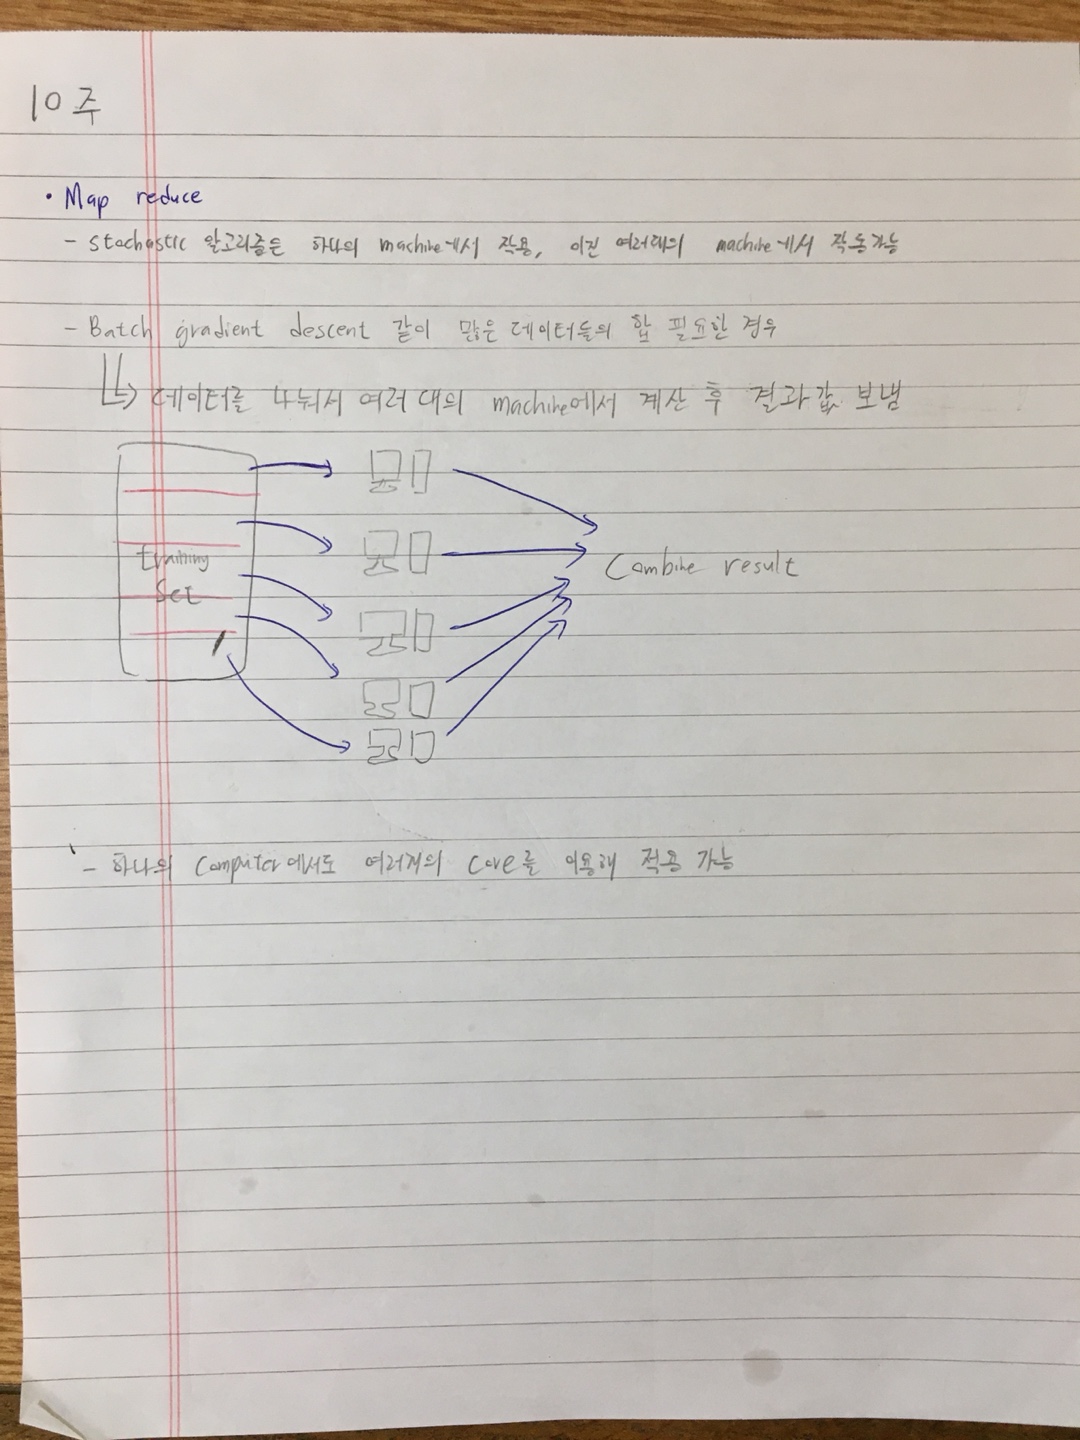 10주
• Map reduce
- Stochastic 알고리즘은 하나의 machine에서 작용, 이건 여러대의 machine에서 작동가능
- Batch gradient descent 같이 많은 데이터들의 합 필요한 경우
데이터를 나눠서 여러 대의 machine에서 계산 후 결과값 보냄
training
Set
Combine result
- 하나의 Computer에서도 여러개의 Core를 이용해 적용 가능